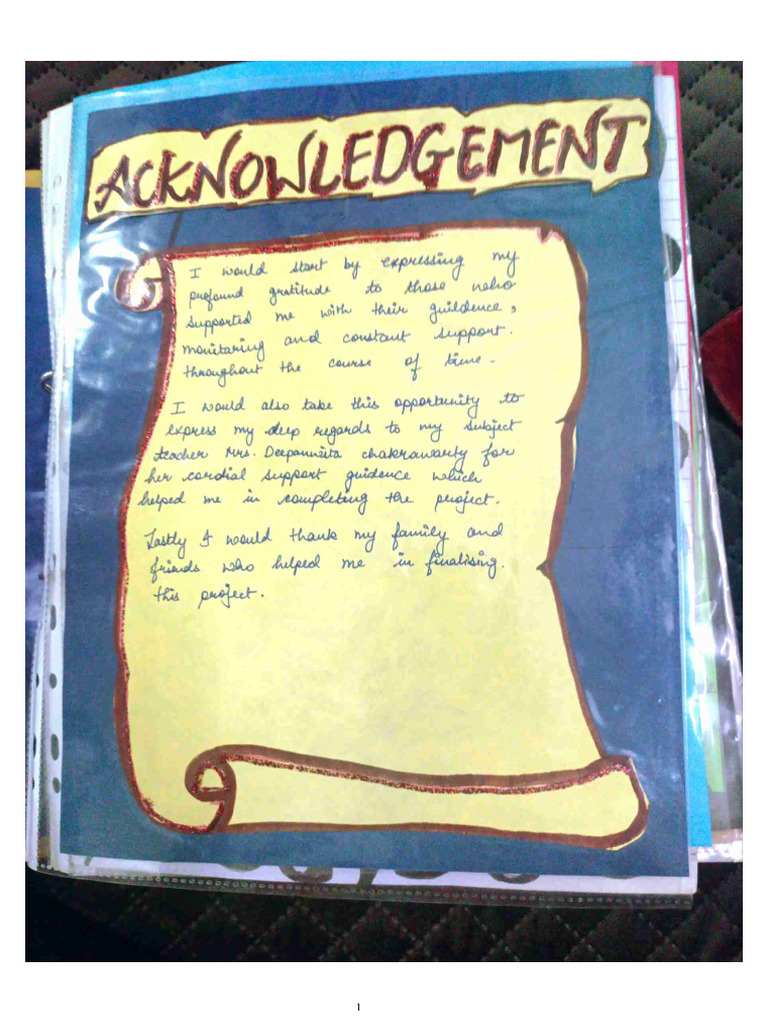 ACKNOWLEDGEMENT
I would start by expressing my
profound gratitude to those who
supported me with their guidence,
monitaring and constant support.
throughout the course of time.
I would also take this opportunity to
express my deep regards to my subject
teacher Mrs. Deepannita chakrawarty for
her cordial support guidence which
helped me in completing the project.
Lastly I would thank my family and
friends who helped me in finalising.
this project.
1